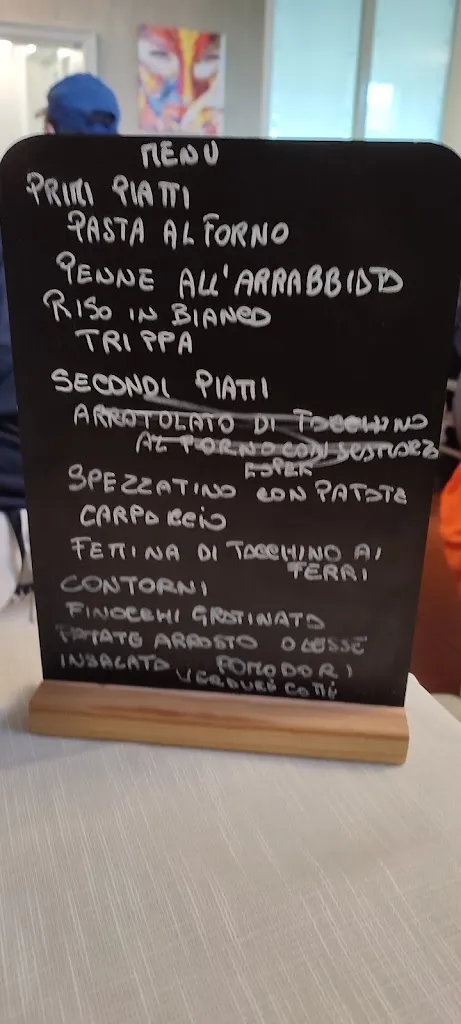 MENU
PRIMI PIATTI
PASTA AL FORNO
PENNE ALL'ARRABBIATA
RISO IN BIANCO
TRIPPA
SECONDI PIATTI
ARROTOLATO DI TACCHINO
AL FORNO CON
SPEZZATINO CON PATATE
CARPACCIO
FETTINA DI TACCHINO AI
FERRI
CONTORNI
FINOCCHI GRATINATI
PATATE ARROSTO O LESSE
INSALATA POMODORI
VERDURE COTTE